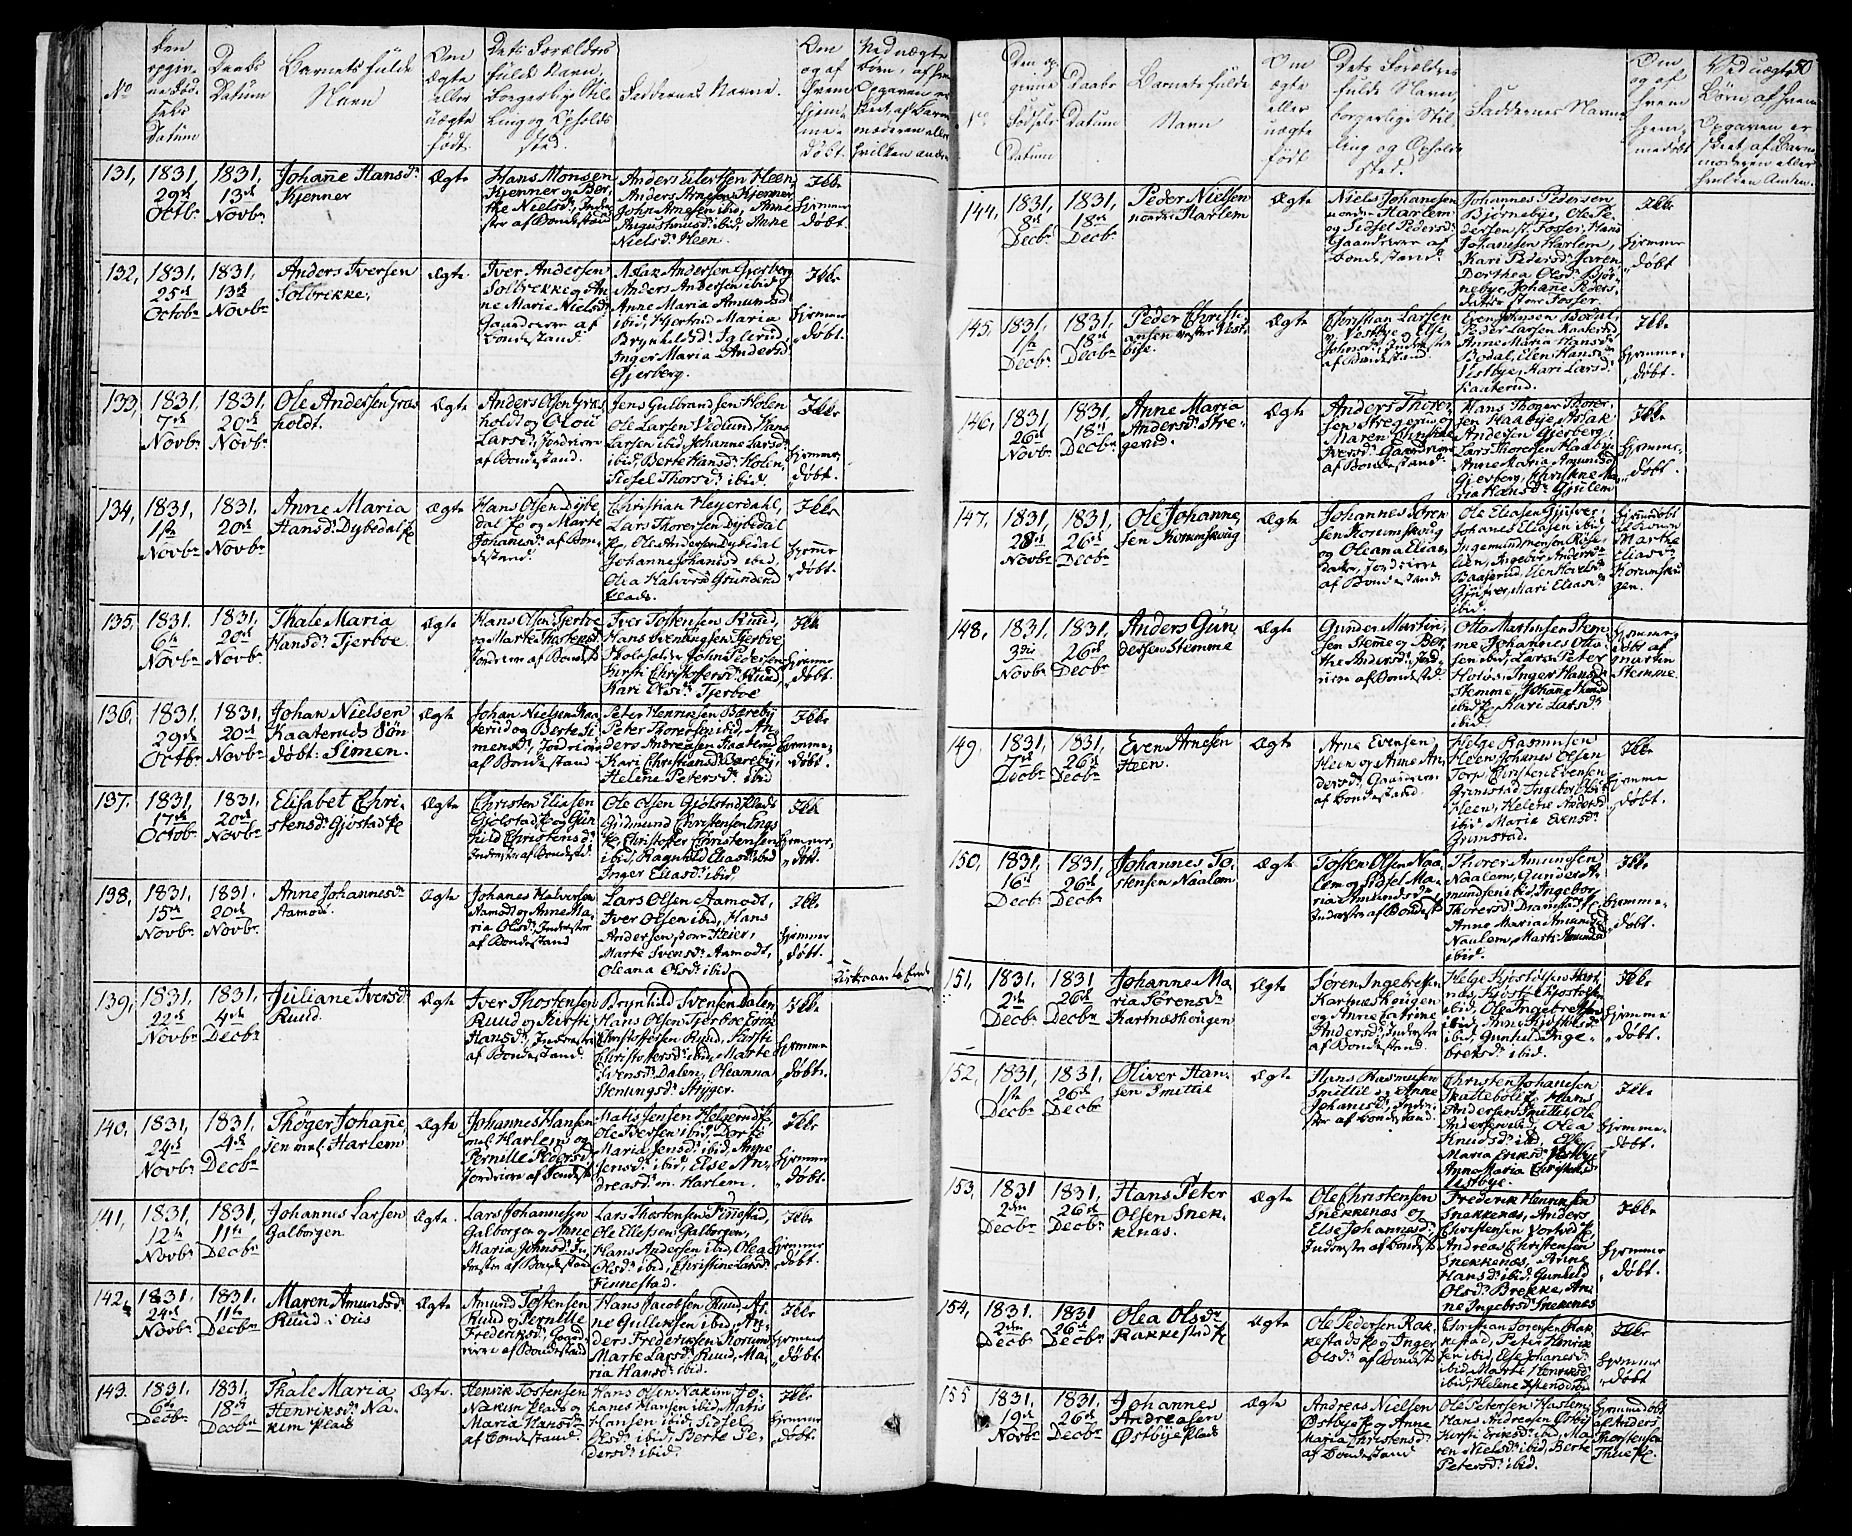 No
Den opgivne Fødsels Datum
Daabs Datum
Barnets fulde Navn
Om ægte eller uægte født.
Dets Forældres fulde Navn, borgerlige Stilling og Opholdssted.
Faddernes Navne.
Om og af hvem hjemmedøbt.
131, 1831, 29de Octbr 1831, 13de Novbr
Johanne Hansdr
Kjenner
Ægte
Hans Monsen
Kjenner og Ber-
the Nielsdr, Inder-
ster af Bondestand
Anders Eilertsen Heen,
Anders Arnesen Kjenner,
John Arnesen ibid, Anne
Augustinusdr ibid, Anne
Nielsdr Heen.
Ikke hjemmedøbt.
132, 1831, 25de Octobr 1831, 13de Novbr
Anders Iversen
Solbrekke,
Ægte
Iver Andersen
Solbrekke og An-
ne Marie Nielsdr
Gaardeiere af
Bondestand.
Aslak Andersen Gjerberg
Anders Andersen ibid,
Anne Maria Amundsdr
ibid, Hjertrud Maria
Brynhildsdr Iglerud,
Inger Maria Andersdr
Gjerberg.
Ikke hjemmedøbt.
133, 1831, 7de Novbr 1831, 20de Novbr
Ole Andersen Græs-
holdt.
Ægte
Anders Olsen Græs-
holdt og Olou
Larsdr, Jordeiere
af Bondestand.
Jens Gulbrandsen Holen
Ole Larsen Vedlund, Hans
Larsen ibid, Johanne Larsdr
ibid, Berte Hansdr Holen,
Sidsel Thorsdr ibid.
Ikke hjemmedøbt.
134, 1831, 1ste Novbr 1831, 20de Novbr
Anne Maria
Hansdr Dybedal
Ægte
Hans Olsen Dybe-
dal og Marte
Johanisdr af Bon-
destand.
Christian Heyerdahl,
Lars Thoresen Dybedal
Ole Andersen Dybedal
Johanne Johanisd ibid,
Olea Halvorsd Grünerud
Plads.
Ikke hjemmedøbt.
135, 1831, 6te Novbr 1831, 20de Novbr
Thale Maria
Hansdr Tjerboe.
Ægte
Hans Olsen Tjerboe
og Marte Thostensdr
Jordeiere af Bondest.
Iver Tostensen Ruud,
Hans Svenungsen Tjerboe
John Pedersen
Kirsti Christofersdr Ruud,
Kari Olsdr Tjerboe
Ikke hjemmedøbt.
136, 1831, 29de Octbr 1831, 20de Novbr
Johan Nielsen
Kaateruds Søn
døbt: Simen.
Ægte
Johan Nielsen Kaa-
terud og Berte Si-
mensdr, Jordeiere
af Bondestand
Peter Henriksen Bæreby
Peter Thorersen ibid, An-
ders Andreasen Kaaterud,
Kari Christiansdr Bæreby,
Helene Petersdr ibid
Ikke hjemmedøbt.
137, 1831, 17de Octobr 1831, 20de Novbr
Elisabet Chri-
stensdr Gjolstad
Ægte
Christen Eliasen
Gjolstad og Gun-
hild Christensdr
Inderster af Bondestd.
Ole Olsen Gjolstad Plads
Gudmund Christensen Enges
Christoffer Christensen
ibid, Ragnhild Eliasdr ibid
Inger Eliasdr ibid,
Ikke hjemmedøbt.
138, 1831, 15de Novbr 1831, 20de Novbr
Anne Johannesdr
Aamodt.
Ægte
Johanes Halvorsen
Aamodt og Anne Ma-
ria Olsdr, Inderster
af Bondestand
Lars Olsen Aamodt,
Iver Olsen ibid, Hans
Andersen, store Heier,
Marte Svensdr Aamodt,
Oleana Olsdr ibid.
Ikke hjemmedøbt.
139, 1831, 22de Novbr 1831, 4de Decbr
Juliane Iversdr
Ruud.
Ægte
Iver Thostensen
Ruud og Kirsti
Hansdr, Inderster
af Bondestand.
Brynhild Svensen Dalen,
Hans Olsen Tjerboe,
Christoffersen Ruud, Kirsti
Christoffersdr ibid, Marte
Svensdr Dalen, Oleanna
Stenungsdr Stygger.
Ikke hjemmedøbt.
140, 1831, 24de Novbr 1831, 4de Decbr
Thøger Johanne-
sen mel Harlem
Ægte
Johannes Hansen
mel Harlem og
Pernille Pedersdr
Jordeiere af Bondestd
Matis Jensen Helgerud,
Ole Bersen ibid, Dorte
Maria Jensdr ibid, Anne
Jensdr ibid, Else An-
dreasdr m. Harlem.
Ikke hjemmedøbt.
141, 1831, 12te Novbr 1831, 11te Decbr
Johannes Larsen
Galborgen
Ægte.
Lars Johannesen
Galborgen og Anne
Maria Johnsdr In-
derster af Bondestand
Lars Thostensen Finnestad,
Ole Ellefsen Galborgen,
Hans Andersen ibid, Olea
Olsdr ibid, Christine Larsdr
Finnestad.
Ikke hjemmedøbt.
142, 1831, 24de Novbr 1831, 11te Decbr
Maren Amundsdr
Ruud i Ous
Ægte
Amund Tostensen
Ruud og Pernille
Frederiksdr, Gaard-
eiere af Bondestand
Hans Jacobsen Ruud, Ar-
ne Gulliksen ibid, An-
ders Frederiksen Korum
Marte Larsdr Ruud, Ma-
ria Hansdr ibid.
Ikke hjemmedøbt.
143. 1831, 6te Decbr 1831, 18de Decbr
Thale Maria
Henriksdr Na-
kim Plads
Ægte.
Henrik Tostensen
Nakim Plads og
Maria Hansdr
af Bondestand.
Hans Olsen Nakim, Jo-
hanes Hansen ibid, Matis
Hansen ibid, Sidsel
Olsdr ibid, Berte Pe-
dersdr ibid.
Ikke hjemmedøbt.
50
No.
Den opgivne Fødsels Datum
Daabs Datum
Barnets fulde Navn
Om ægte eller uægte født
Dets Forældres fulde Navn, borgerlige Stilling og Opholdssted.
Faddernes Navne
Om og af hvem hjemmedøbt
Ved uægte Børn, af hvem Opgaven er skeet, af Barnemoderen eller hvilken Anden.
144, 1831, 8de Decbr 1831, 18de Decbr
Peder Nielsen
nordre Harlem
Ægte
Niels Johanesen
nordre Harlem
og Sidsel Pedersdr
Gaardeiere af
Bondestand.
Johannes Pedersen
Bjørnebye, Ole Pe-
dersen st. Fosser, Hans
Johansen Harlem,
Kari Pedersdr Jaren,
Dorthea Olsdr Bjør-
nebye, Johane Peders-
datter store Fosser.
Ikke hjemmedøbt
145. 1831, 1ste Decbr 1831, 18de Decbr
Peder Christi-
ansen vester Vest-
bye.
Ægte
Christian Larsen
v. Vestbye og Else
Johnsdr, Inderster
af Bondestand.
Even Johnsen Bodal,
Peder Larsen Kaaterud
Anne Maria Hansdr
Bodal, Elen Hansdr
Vestbye, Kari Larsdr
Kaaterud.
Ikke hjemmedøbt.
146, 1831, 26de Novbr 1831, 18de Decbr
Anne Maria
Andersdr Stre-
gerud.
Ægte
Anders Thorer-
sen Stregerud og
Maren Christine
Iversdr Gaardeiere
af Bondestand.
Hans Thoger Thorer-
sen Haabye, Aslak
Andersen Gjerberg,
Lars Thoresen Haabye
Anne Maria Amundsdr
Gjerberg, Christine Ma-
ria Hansdr Gjulem
Ikke hjemmedøbt.
147. 1831, 28de Novbr 1831, 26de Decbr
Ole Johanne-
sen Korumskoug
Ægte
Johannes Søren-
sen Korumskoug
og Oleana Elias-
datter, Jordeiere
af Bondestand
Ole Eliasen Gjufver,
Johanes Eliasen ibid,
Ingemund Monsen Riise-
lien, Ingebor Andersdr
Baaserud, Elen Hovelsdr
Gjufver, Mari Eliasdr
ibid.
Hjemmedøbt
Marthe
Eliasdr
Korumskougen.
148, 1831, 3die Novbr 1831, 26de Decbr
Anders Gun-
dersen Stemme
Ægte
Gunder Martin-
sen Stemme og Ber-
the Andersdr, Jord-
eiere af Bondestand.
Otto Martinsen Stem-
me, Johannes Otto-
sen ibid, Lars Peter
Holøs, Inger Hansdr
Stemme, Johanne
ibid, Kari Larsdr
ibid.
Hjemme-
døbt af
Martin
Stemme.
149, 1831, 7de Decbr 1831, 26de Decbr
Even Arnesen
Heen.
Ægte
Arne Evensen
Heen og Anne An-
dersdr, Gaardeiere
af Bondestand.
Helge Rasmusen
Heen, Johanes Olsen
Torp, Christen Evensen
Grimstad, Ingebor
Heen, Helene Andersdr
ibid, Maria Evensdr
Grimstad.
Ikke hjemmedøbt.
150, 1831, 16de Decbr 1831, 26de Decbr
Johannes To-
stensen Naalem
Ægte
Tosten Olsen Naa-
lem og Sidsel Ma-
ria Amundsdr
Inderster af Bondestd.
Thorer Amundsen
Naalem, Gunder A-
mundsen ibid, Ingebor
Thorersdr Dramstad,
Anne Maria Amundsdr
Naalem, Marte Amundsdr
ibid.
Ikke hjemmedøbt.
151, 1831, 2de Decbr 1831, 26de Decbr
Johanne Ma-
ria Sørensdr
Kartnæshougen
Ægte
Søren Ingebretsen
Kartnæshougen
og Anne Catrine
Andersdr, Inderster
af Bondestand.
Helge Kjøstolsen Kart-
næs, Kjøstel Kjøstolsen
ibid, Ole Ingebretsen
ibid, Anne Kjøstolsdr
ibid, Gunhild Inge-
bretsdr ibid.
Ikke hjemmedøbt.
152, 1831, 1ste Decbr 1831, 26de Decbr
Oliver Han-
sen Smittil
Ægte
Hans Rasmusen
Smittil og Anne
Johanisdr, Inder-
ster af Bondestand.
Christen Johanesen
Skattebøl, Hans
Andersen Smittil, Ole
Andersen ibid, Olea
Knudsdr ibid, Else
Maria Eriksdr Vestbye,
Anne Maria Christensdr
Vestbye.
Ikke hjemmedøbt.
153, 1831 2den Decbr 1831, 26de Decbr
Hans Peter
Olsen Snek-
kenæs.
Ægte
Ole Christensen
Snekkenæs og
Else Johannesdr,
Inderster af Bondestd.
Frederik Henriksen
Snekkenæs, Anders
Christensen Portved,
Andreas Christensen
Snekkenæs, Anne
Hansdr ibid, Gunhild
Olsdr Brekke, An-
ne Ingebrsdr Snekenæs
Ikke hjemmedøbt.
154, 1831, 2den Decbr 1831 26de Decbr
Olea Olsdr
Rakkestad
Ægte
Ole Pedersen Rak-
kestad og Inger
Olsdr af Bondestd.
Christian Sørensen Rak-
kestad, Peter Henrik-
sen ibid, Else Johanesdr
ibid, Marte Henriksdr
ibid, Helene
Ikke hjemmedøbt
155 1831, 19de Novbr 1831, 26de Decbr
Johannes
Andreasen
Østbye Plads
Ægte
Andreas Nielsen
Østbye og Anne
Maria Christensdr
af Bondestand
Ole Petersen Haslem,
Hans Andreasen Østby
Kirsti Eriksdr ibid, Ma-
ren Nielsdr ibid, Berte
Petersdr ibid.
Hjemmedøbt
af Anders
Thorstensen
Thue